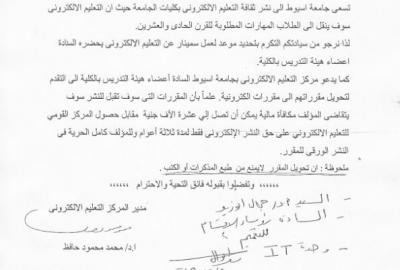 تسعى جامعة اسيوط الى نشر ثقافة التعليم الالكتروني بكليات الجامعة حيث ان التعليم الالكتروني
سوف ينقل الى الطلاب المهارات المطلوبة للقرن الحادى والعشرين.
لذا نرجو من سيادتكم التكرم بتحديد موعد لعمل سمينار عن التعليم الالكتروني يحضره السادة
اعضاء هيئة التدريس بالكلية.
كما يدعو مركز التعليم الالكتروني بجامعة اسيوط السادة أعضاء هيئة التدريس بالكلية الى التقدم
لتحويل مقرراتهم الى مقررات الكترونية. علماً بأن المقررات التى سوف تقبل للنشر سوف
يتقاضى المؤلف مكافأة مالية يمكن أن تصل إلي عشرة الأف جنية مقابل حصول المركز القومي
للتعليم الالكتروني على حق النشر الإلكتروني فقط لمدة ثلاثة أعوام وللمؤلف كامل الحرية فى
النشر الورقي للمقرر.
ملحوظة : ان تحويل المقرر لايمنع من طبع المذكرات أو الكتب .
،،،،،، وتفضلوا بقبوله فائق التحية والاحترام ،،،،،،
مدير المركز التعليم الالكتروني
السادة رؤساء الأقسام
وحدة IT
ا.د/ محمد محمود حافظ